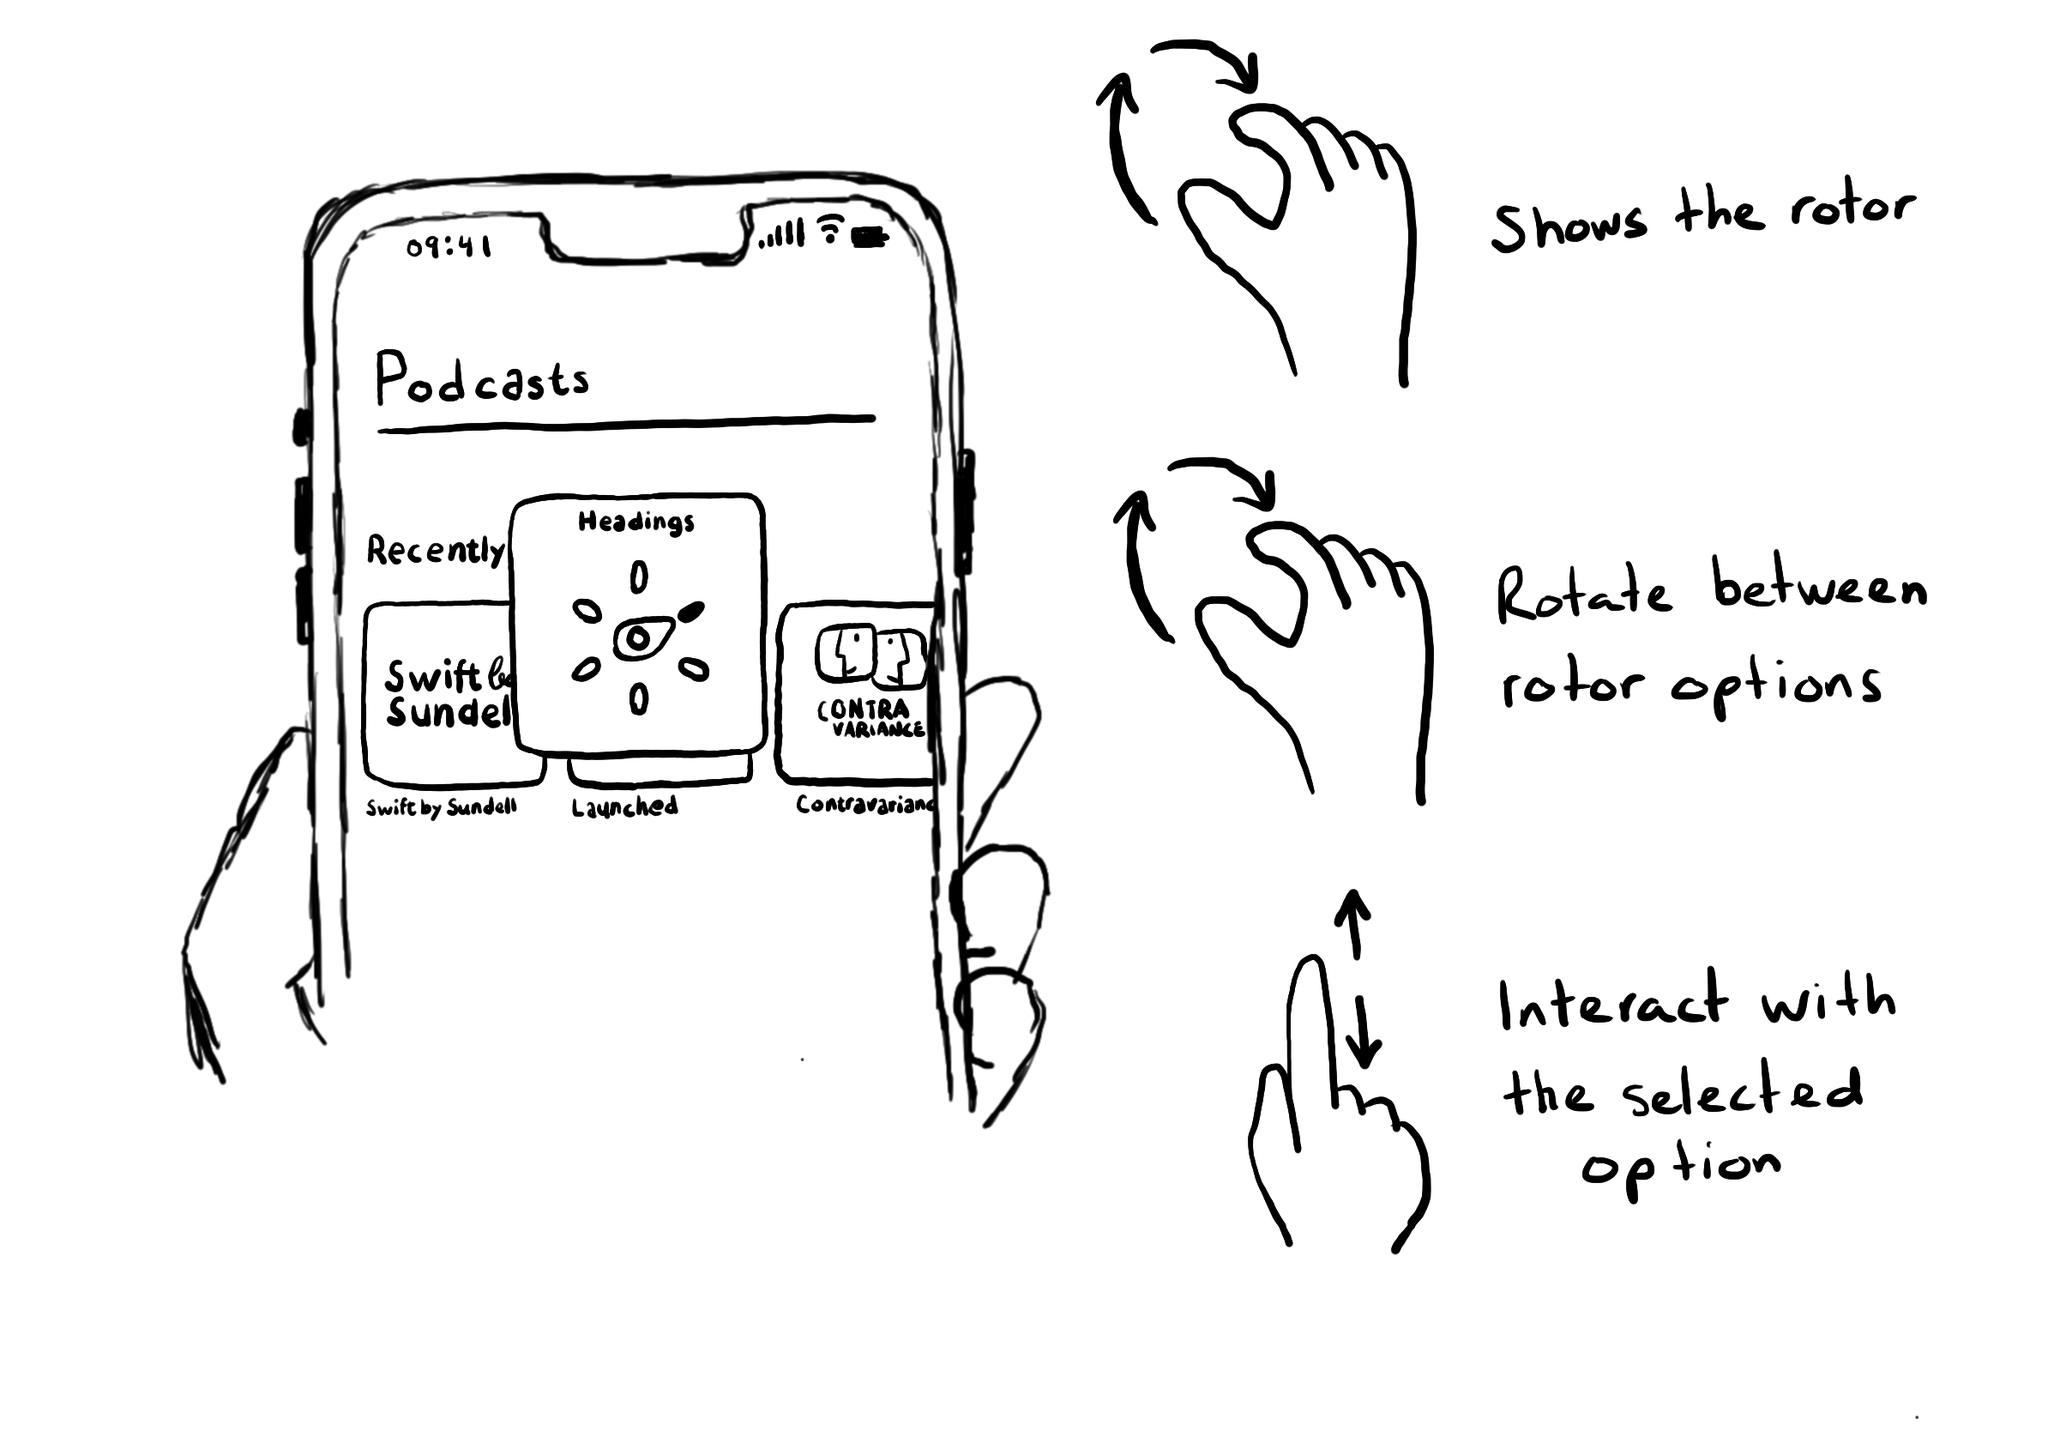 09:41
Podcasts
Headings
Recently
Swift
Sundel
CONTRA
VARIANCE
Swift by Sundell
Launched
Contravarianc
Shows the rotor
Rotate between
rotor options
Interact with
the selected
option